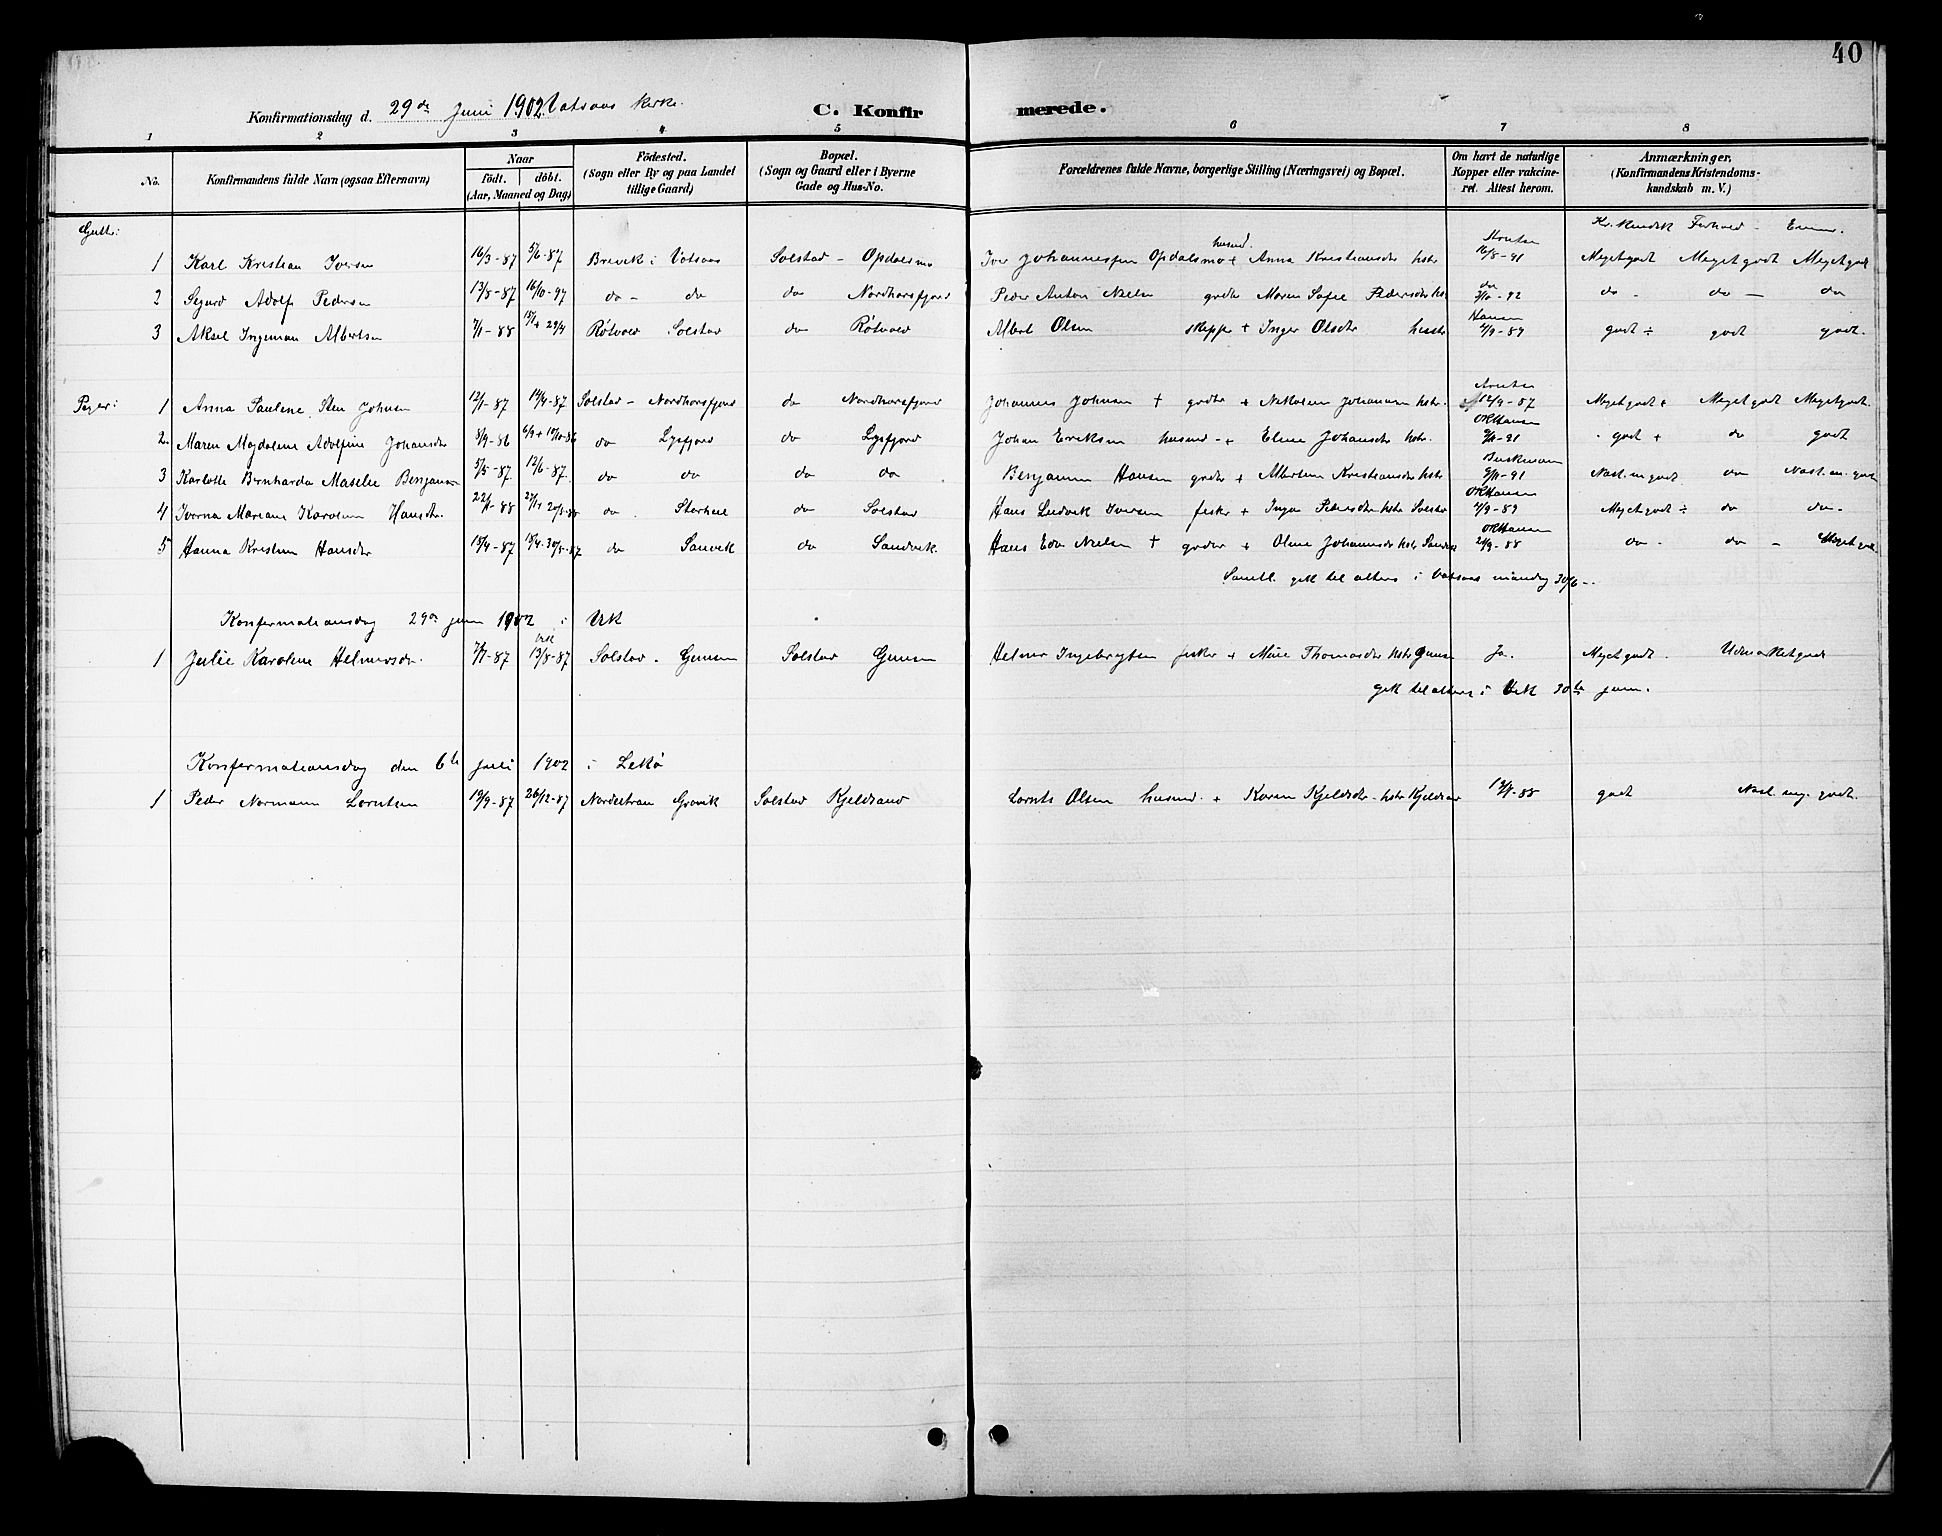 40
Konfirmationsdag d. 29de Juni 1902 Vatsaas Kirke.
C. Konfirmerede.
1 2 3 4 5 6 7 8
No. Konfirmandens fulde Navn (ogsaa Efternavn) Naar födt. döbt. (Aar, Maaned og Dag) Födested. (Sogn eller By og paa Landet tillige Gaard) Bopæl. (Sogn og Gaard eller i Byerne Gade og Hus-No. Forældrenes fulde Navne, borgerlige Stilling (Næringsvei) og Bopæl. Om havt de naturlige Kopper eller vakcineret. Attest herom. Anmærkninger. (Konfirmandens Kristendomskundskab m. V.)
Gutter: Kr. kundsk Forhold -
1 Karl Kristian Iversen 16/3-87 5/6-87 Brevik i Vatsaas Solstad - Opdalsmo Iver Johannessen Opdalsmo + husmd. Anna Kristiansdtr hstr 16/8-91 Megetgodt Megetgodt Megetgodt
2 Sigurd Adolf Pedersen 13/8-87 16/10-97 do - do do Nordhorsfjord Peder Anton Nielsen grdbr Maren Sofie Pedersdtr hstr do 3/10-92 do - do - do
3 Aksel Ingeman Albertsen 7/1-88 29/4 Røtvold Solstad do Røtvold Albert Olsen skipper + Inger Olsdtr hustr Hansen 4/9-89 godt ÷ godt godt.
Piger: 1 Anna Pauline Johnsen 12/1-87 14/4-87 Solstad - Nordhorsfjord do Nordhorsfjord Johannes Johnsen + grdbr + Nikoline Johansen hstr. 12/9-87 Megetgodt + Megetgodt Megetgodt.
2 Maren Magdalene Adolfine Johansdtr 3/9-86 6/9 + 10/10-86 do Lysfjord do Lysfjord Johan Eriksen husmd - + Eline Johansdtr hstr. OKHansen 9/11-91 godt + do godt
3 Karlotte Bernharda Maselie Benjaminsen 5/5-87 12/6-87 do do do do Benjamin Hansen grdbr + Albertine Kristiansdtr hstr 9/11-91 Nast.m.godt do Nast.m.godt
4 Iverna Mariane Karoline Hansdtr. 22/1-88 do Storheil do Solstad Hans Ludvik Iversen fisker + Inga Pedersdtr hstr Solstad OKHansen 4/9-89 Megetgodt ÷ do do -
5 Hanna Kristine Hansdtr 15/4-87 do Sanvik do Sandvik Hans Edv. Nielsen + grdbr + Oline Johannsdtr hstr OKHansen 24/9-88 do - do - Megetgodt
Samtl. gik til alters i Vatsaas mandag 30/6 -.
Konfermationsdag 29de juni 1902 i Vik
1 Julie Karoline Helmersdr. 7/7-87 Vik 13/8-87 Solstad - Gunsen Solstad Gunsen Helmer Ingebrigtsen fisker + Marie Thomasdtr hstr Ja. Megetgodt. Udmærketgodt
gik til alters i Vik 30te juni.
Konfermationsdag den 6te juli 1902 i Lekø
1 Peder Normann Lorntsen 19/9-87 26/12-87 Nordestran Gravik Solstad Kjeldsand Lornts Olsen husmd. + Karen Kjeldsdtr - hstr Kjeldsand 19/9-88 godt Nast. mg. godt.